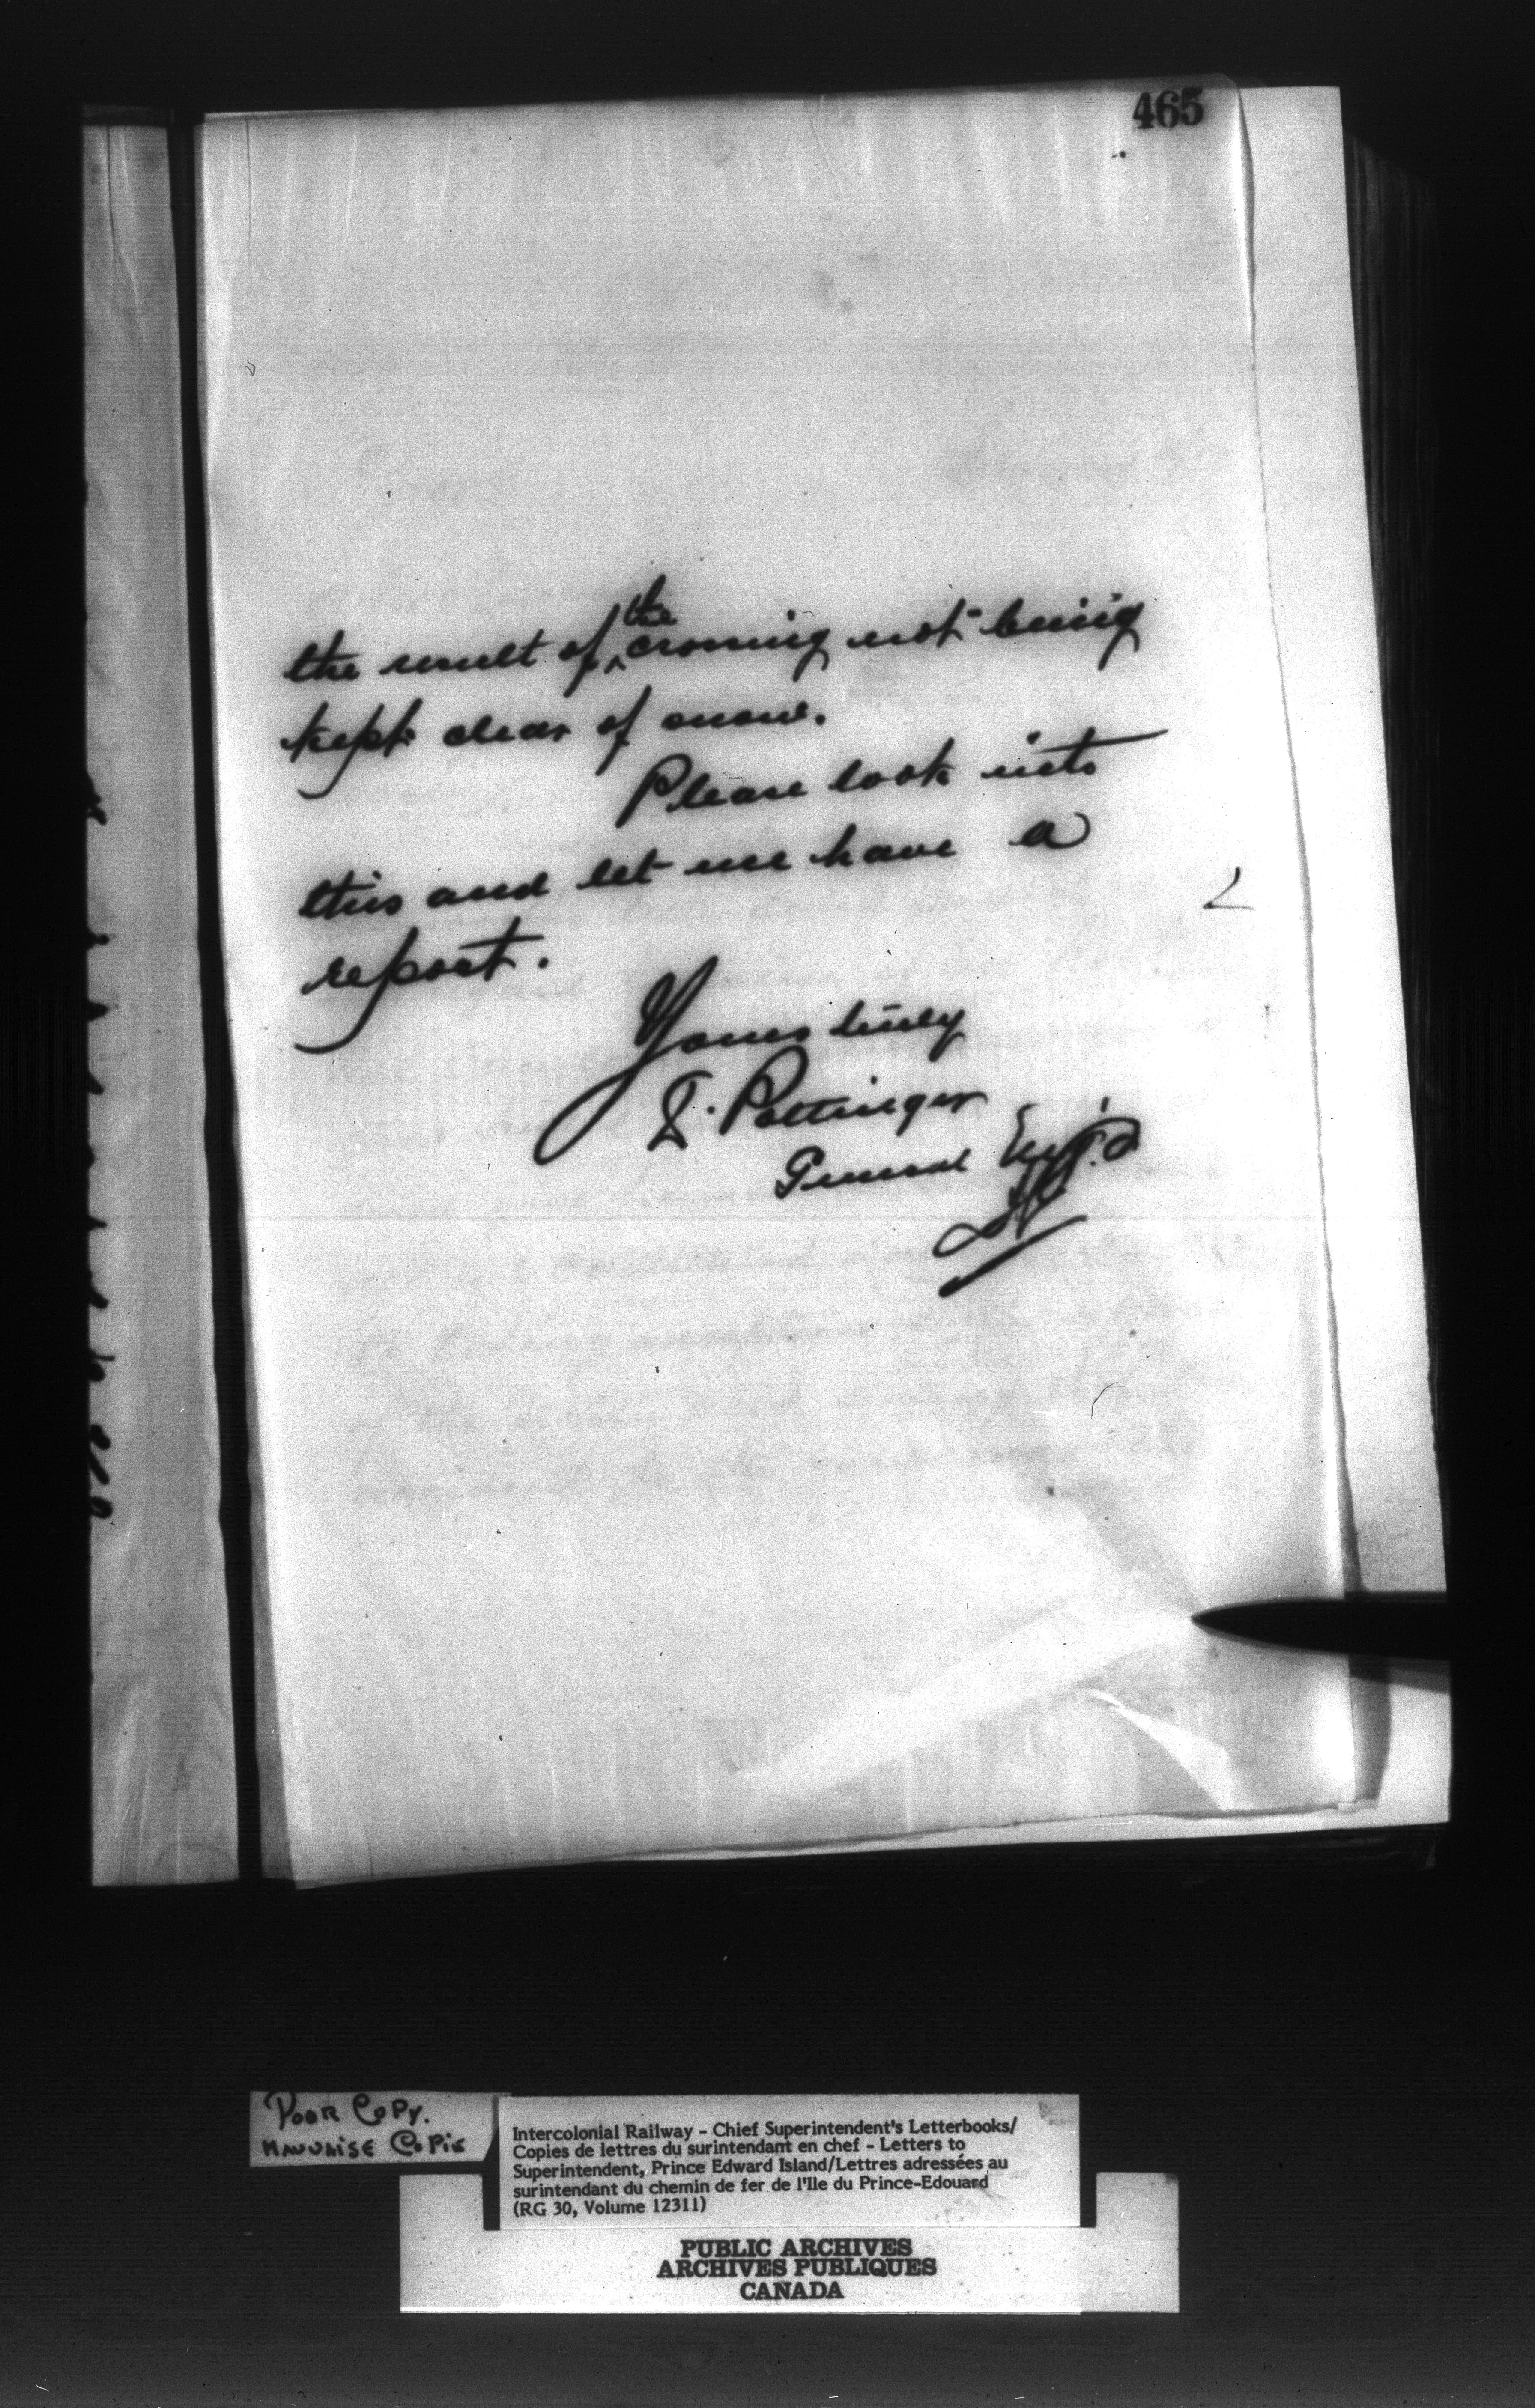 465
the result of the crossing not being
kept clear of snow.
Please look into
this and let me have a
report.
Yours truly
D. Pottinger
General Supt.
POOR COPY.
MAUVAISE COPIE
Intercolonial Railway - Chief Superintendent's Letterbooks/
Copies de lettres du surintendant en chef - Letters to
Superintendent, Prince Edward Island/Lettres adressées au
surintendant du chemin de fer de l'Ile du Prince-Edouard
(RG 30, Volume 12311)
PUBLIC ARCHIVES
ARCHIVES PUBLIQUES
CANADA